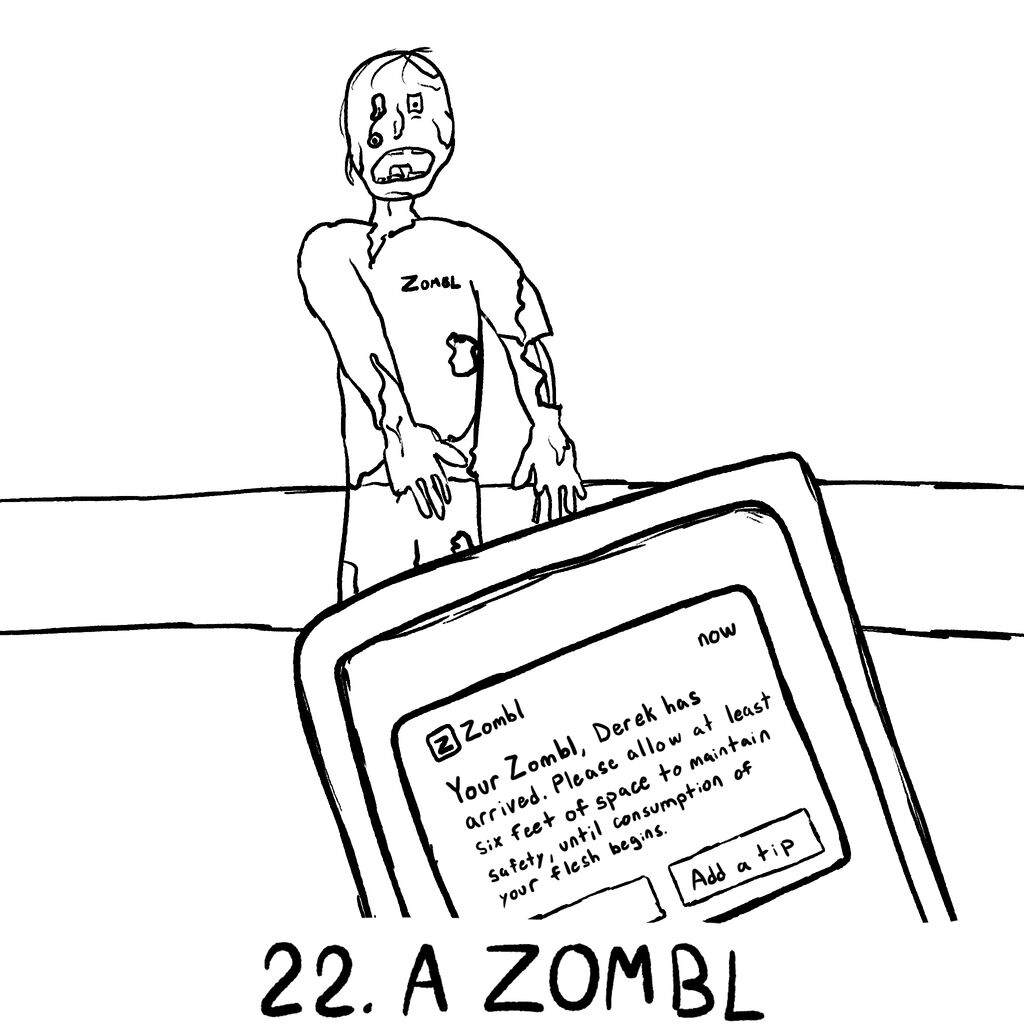 ZOMBL
now
Z Zombl
Your Zombl, Derek has
arrived. Please allow at least
six feet of space to maintain
safety, until consumption of
your flesh begins.
Add a tip
22. A ZOMBL